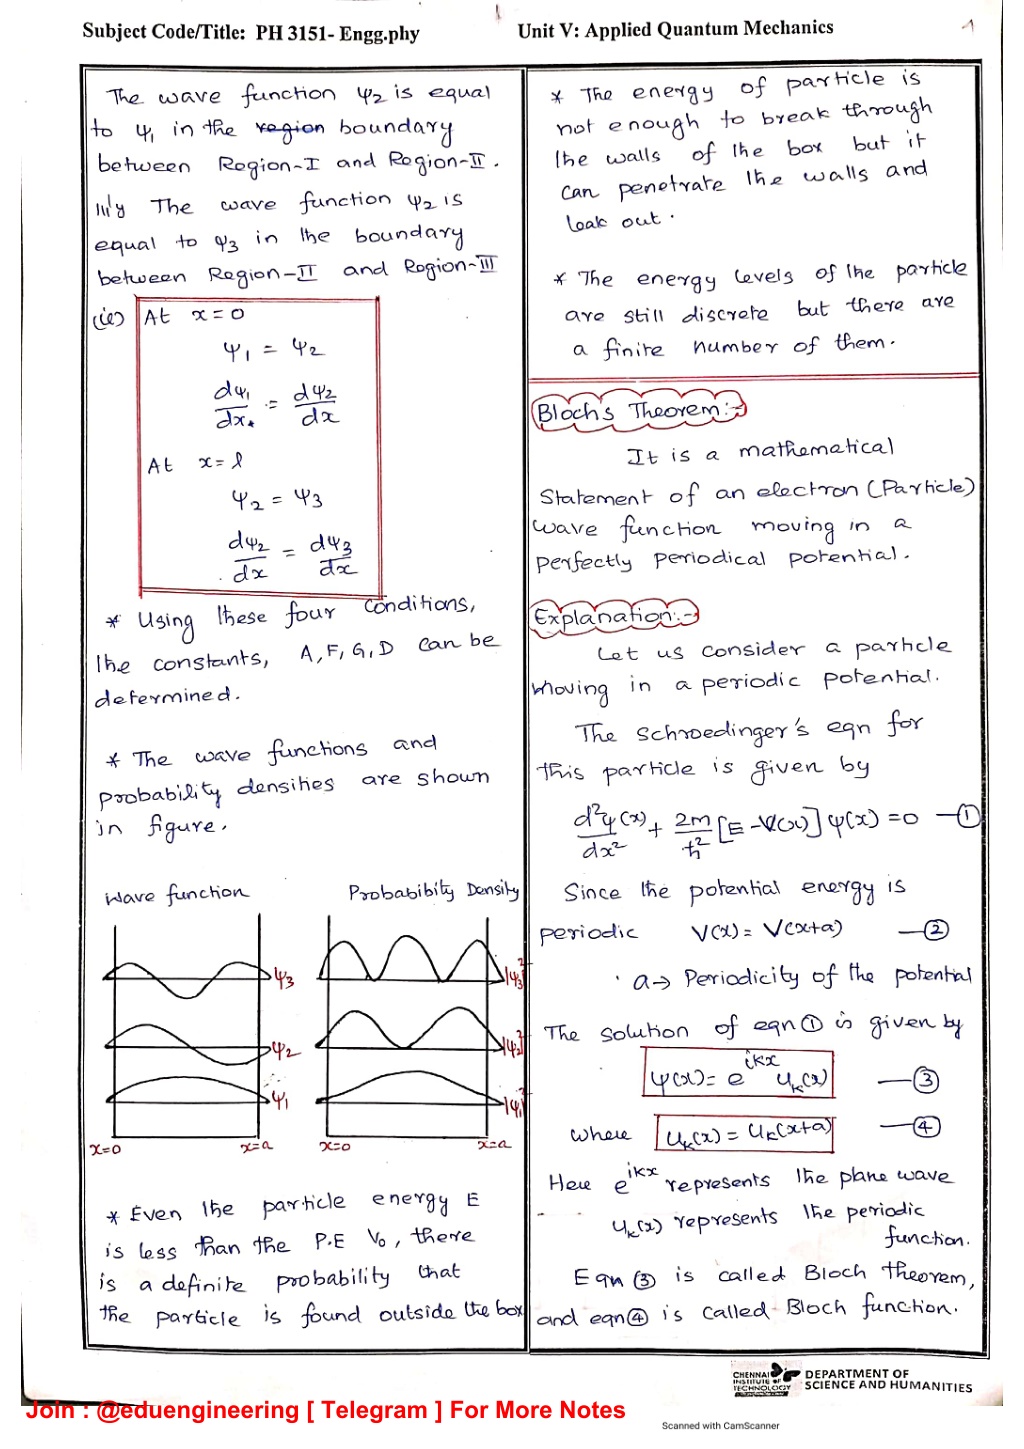 Subject Code/Title: PH 3151- Engg.phy
Unit V: Applied Quantum Mechanics
1
The wave function ψ2 is equal
to ψ1 in the region boundary
between Region-I and Region-II.
lll'y The wave function ψ2 is
equal to ψ3 in the boundary
between Region-II and Region-III
(ie) At x=0
ψ1 = ψ2
dψ1/dx = dψ2/dx
At x=l
ψ2 = ψ3
dψ2/dx = dψ3/dx
* Using these four conditions,
the constants, A,F,G,D can be
determined.
* The wave functions and
probability densities are shown
in figure.
Wave function
Probabibity Density
ψ3
|ψ3|²
ψ2
|ψ2|²
ψ1
|ψ1|²
x=0
x=a
x=0
x=a
* Even the particle energy E
is less than the P.E V0, there
is a definite probability that
the particle is found outside the box
* The energy of particle is
not enough to break through
the walls of the box but it
can penetrate the walls and
leak out.
* The energy levels of the particle
are still discrete but there are
a finite number of them.
Bloch's Theorem:-
It is a mathematical
Statement of an electron (Particle)
wave function moving in a
perfectly periodical potential.
Explanation:-
Let us consider a particle
moving in a periodic potential.
The Schroedinger's eqn for
this particle is given by
d²ψ(x)/dx² + 2m/ħ² [E - V(x)] ψ(x) = 0 —①
Since the potential energy is
periodic V(x) = V(x+a) —②
a→ Periodicity of the potential
The solution of eqn ① is given by
ψ(x) = e^ikx uk(x) —③
where uk(x) = uk(x+a) —④
Here e^ikx represents the plane wave
uk(x) represents the periodic
function.
Eqn ③ is called Bloch theorem,
and eqn ④ is called Bloch function.
CHENNAI
INSTITUTE OF
TECHNOLOGY
DEPARTMENT OF
SCIENCE AND HUMANITIES
Join : @eduengineering [ Telegram ] For More Notes
Scanned with CamScanner